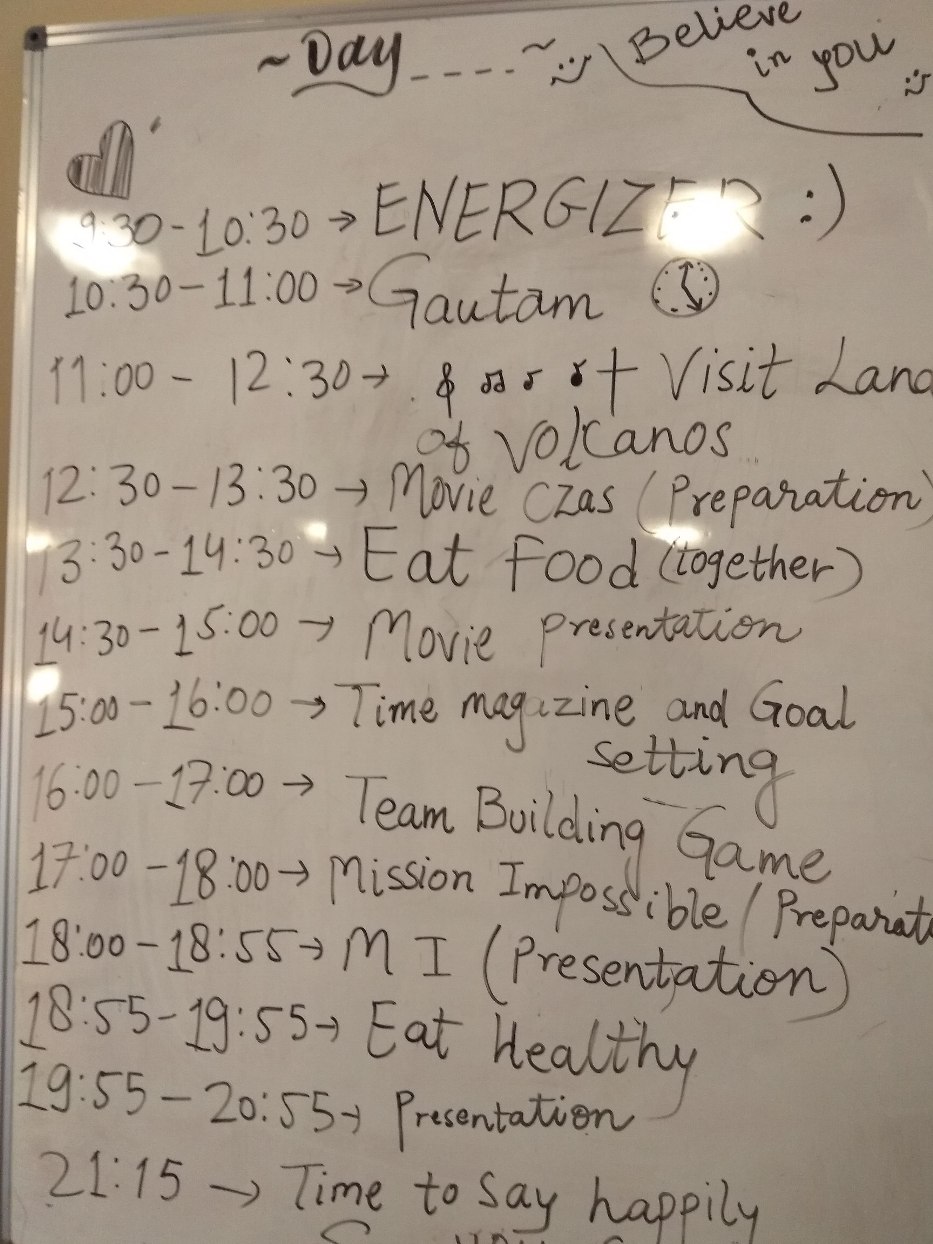 ~Day----~
Believe
in you
9:30-10:30 → ENERGIZER :)
10:30-11:00 → Gautam
11:00 - 12:30 → + Visit Land
of Volcanos
12:30-13:30 → Movie Czas (Preparation)
13:30-14:30 → Eat Food (together)
14:30-15:00 → Movie presentation
15:00-16:00 → Time magazine and Goal
setting
16:00-17:00 → Team Building Game
17:00-18:00 → Mission Impossible (Preparat
18:00-18:55 → M I (Presentation)
18:55-19:55 → Eat Healthy
19:55-20:55 → Presentation
21:15 → Time to Say happily